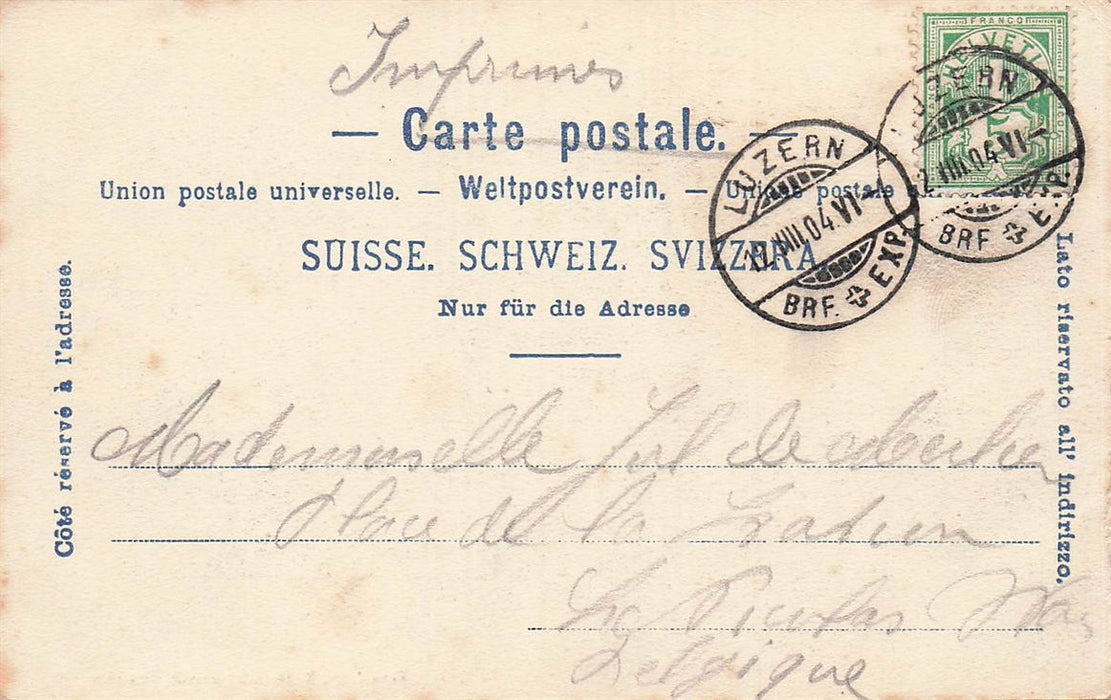 Imprimés
FRANCO
HELVETI
— Carte postale. —
Union postale universelle. — Weltpostverein. — Union postale
SUISSE. SCHWEIZ. SVIZZERA
Nur für die Adresse
Côté réservé à l'adresse.
Lato riservato all' indirizzo.
LUZERN
12.VIII.04.VI–
BRF. EXP.
LUZERN
12.VIII.04.VI–
BRF. EXP.
Mademoiselle Jul de
Place de la Station
St Nicolas Waas
Belgique